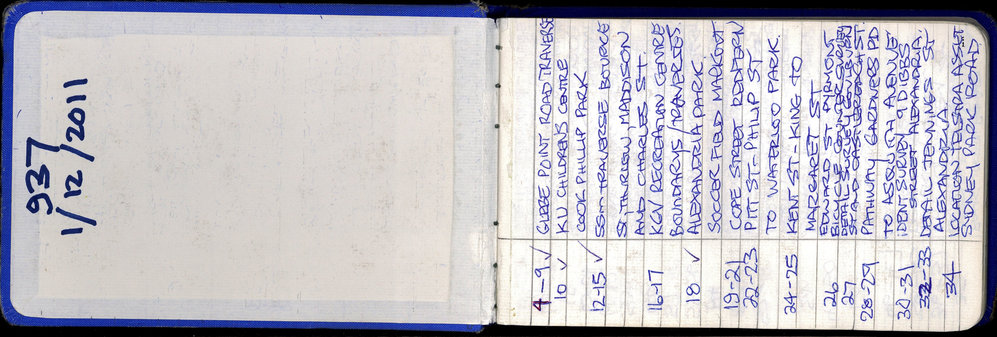 937
1/12/2011
4-9 ✓ GLEBE POINT ROAD TRAVERSE
10 ✓ KU CHILDRENS CENTRE
COOK PHILLIP PARK
12-15 ✓ SSM TRAVERSE BOURCE
ST, THURLOW, MADDISON
AND CHARLES ST.
16-17 KGV RECREATION CENTRE
BOUNDARYS/TRAVERSES.
18 ✓ ALEXANDRIA PARK
SOCCER FIELD MARKOUT
19-21 COPE STREET REDFERN
22-23 PITT ST - PHILIP ST
TO WATERLOO PARK.
24-25 KENT ST - KING TO
MARGARET ST
26 EDWARD ST PYRMONT
BICYCLE COUNTER SURVEY
27 DETAIL SURVEY GOULBURN
ST AND CASTLEREAGH ST.
28-29 PATHWAY GARDNERS RD
TO ASQUITH AVENUE
30-31 IDENT SURVEY 9 DIBBS
STREET ALEXANDRIA.
32-33 DETAIL JENNINGS ST
ALEXANDRIA
34 LOCATION TELSTRA ASSET
SYDNEY PARK ROAD